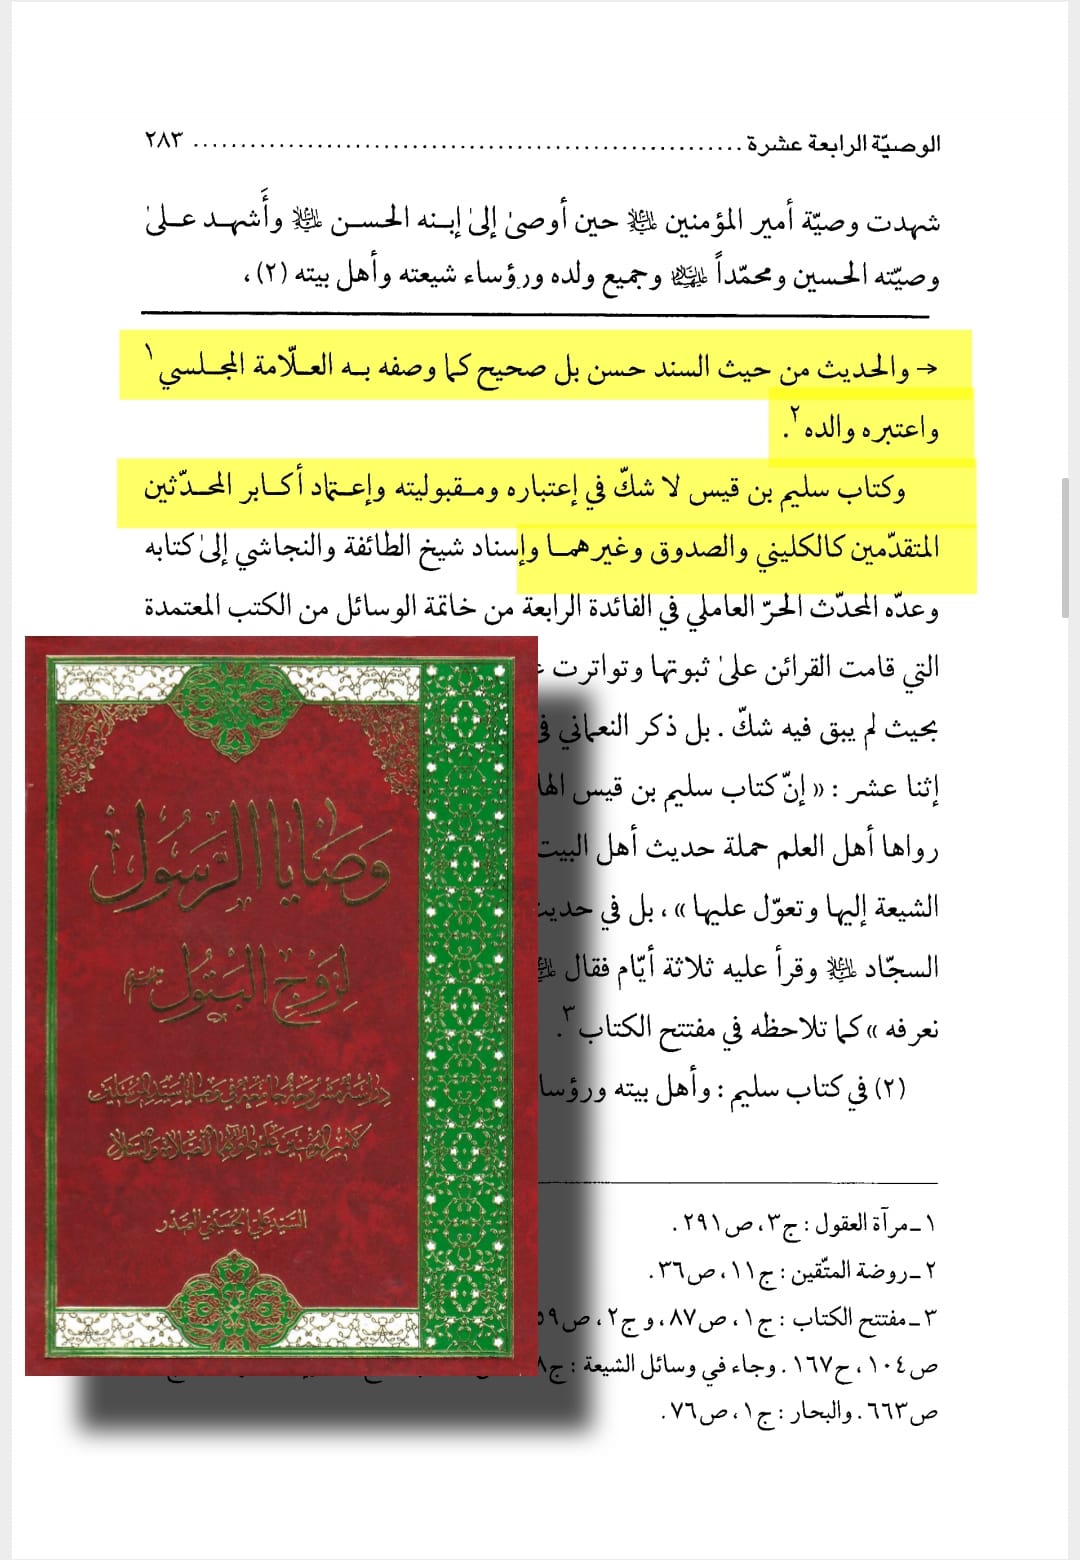 الوصيّة الرابعة عشرة ........................................................ ٢٨٣
شهدت وصيّة أمير المؤمنين عليه السلام حين أوصىٰ إلىٰ إبـنه الحسـن عليه السلام وأَشهـد عـلىٰ
وصيّته الحسين ومحمّداً عليهما السلام وجميع ولده ورؤساء شيعته وأهل بيته (٢)،
→ والحديث من حيث السند حسن بل صحيح كما وصفه بـه العـلّامة المجـلسي ١
واعتبره والده ٢.
وكتاب سليم بن قيس لا شكّ في إعتباره ومـقبوليته وإعـتماد أكـابر المحـدّثين
المتقدّمين كالكليني والصدوق وغيرهمـا وإسناد شيخ الطائفة والنجاشي إلىٰ كتابه
وعدّه المحدّث الحرّ العاملي في الفائدة الرابعة من خاتمة الوسائل من الكتب المعتمدة
التي قامت القرائن علىٰ ثبوتها وتواترت
بحيث لم يبق فيه شكّ . بل ذكر النعماني في
إثنا عشر : « إنّ كتاب سليم بن قيس
رواها أهل العلم حملة حديث أهل البيت
الشيعة إليها وتعوّل عليها » ، بل في حديث
السجّاد عليه السلام وقرأ عليه ثلاثة أيّام فقال
نعرفه » كما تلاحظه في مفتتح الكتاب ٣.
(٢) في كتاب سليم : وأهل بيته
١ ـ مرآة العقول : ج٣ ، ص٢٩١ .
٢ ـ روضة المتّقين : ج١١ ، ص٣٦ .
٣ ـ مفتتح الكتاب : ج١ ، ص٨٧ ، و ج٢ ،
ص١٠٤ ، ح١٦٧ . وجاء في وسائل الشيعة :
ص٦٦٣ . والبحار : ج١ ، ص٧٦ .
وصايا الرسول
لزوج البتول
دراسة مشروحة جامعة في وصايا سيد المرسلين
لأمير المؤمنين عليهما وآلهما الصلاة والسلام
السيد علي الحسيني الصدر